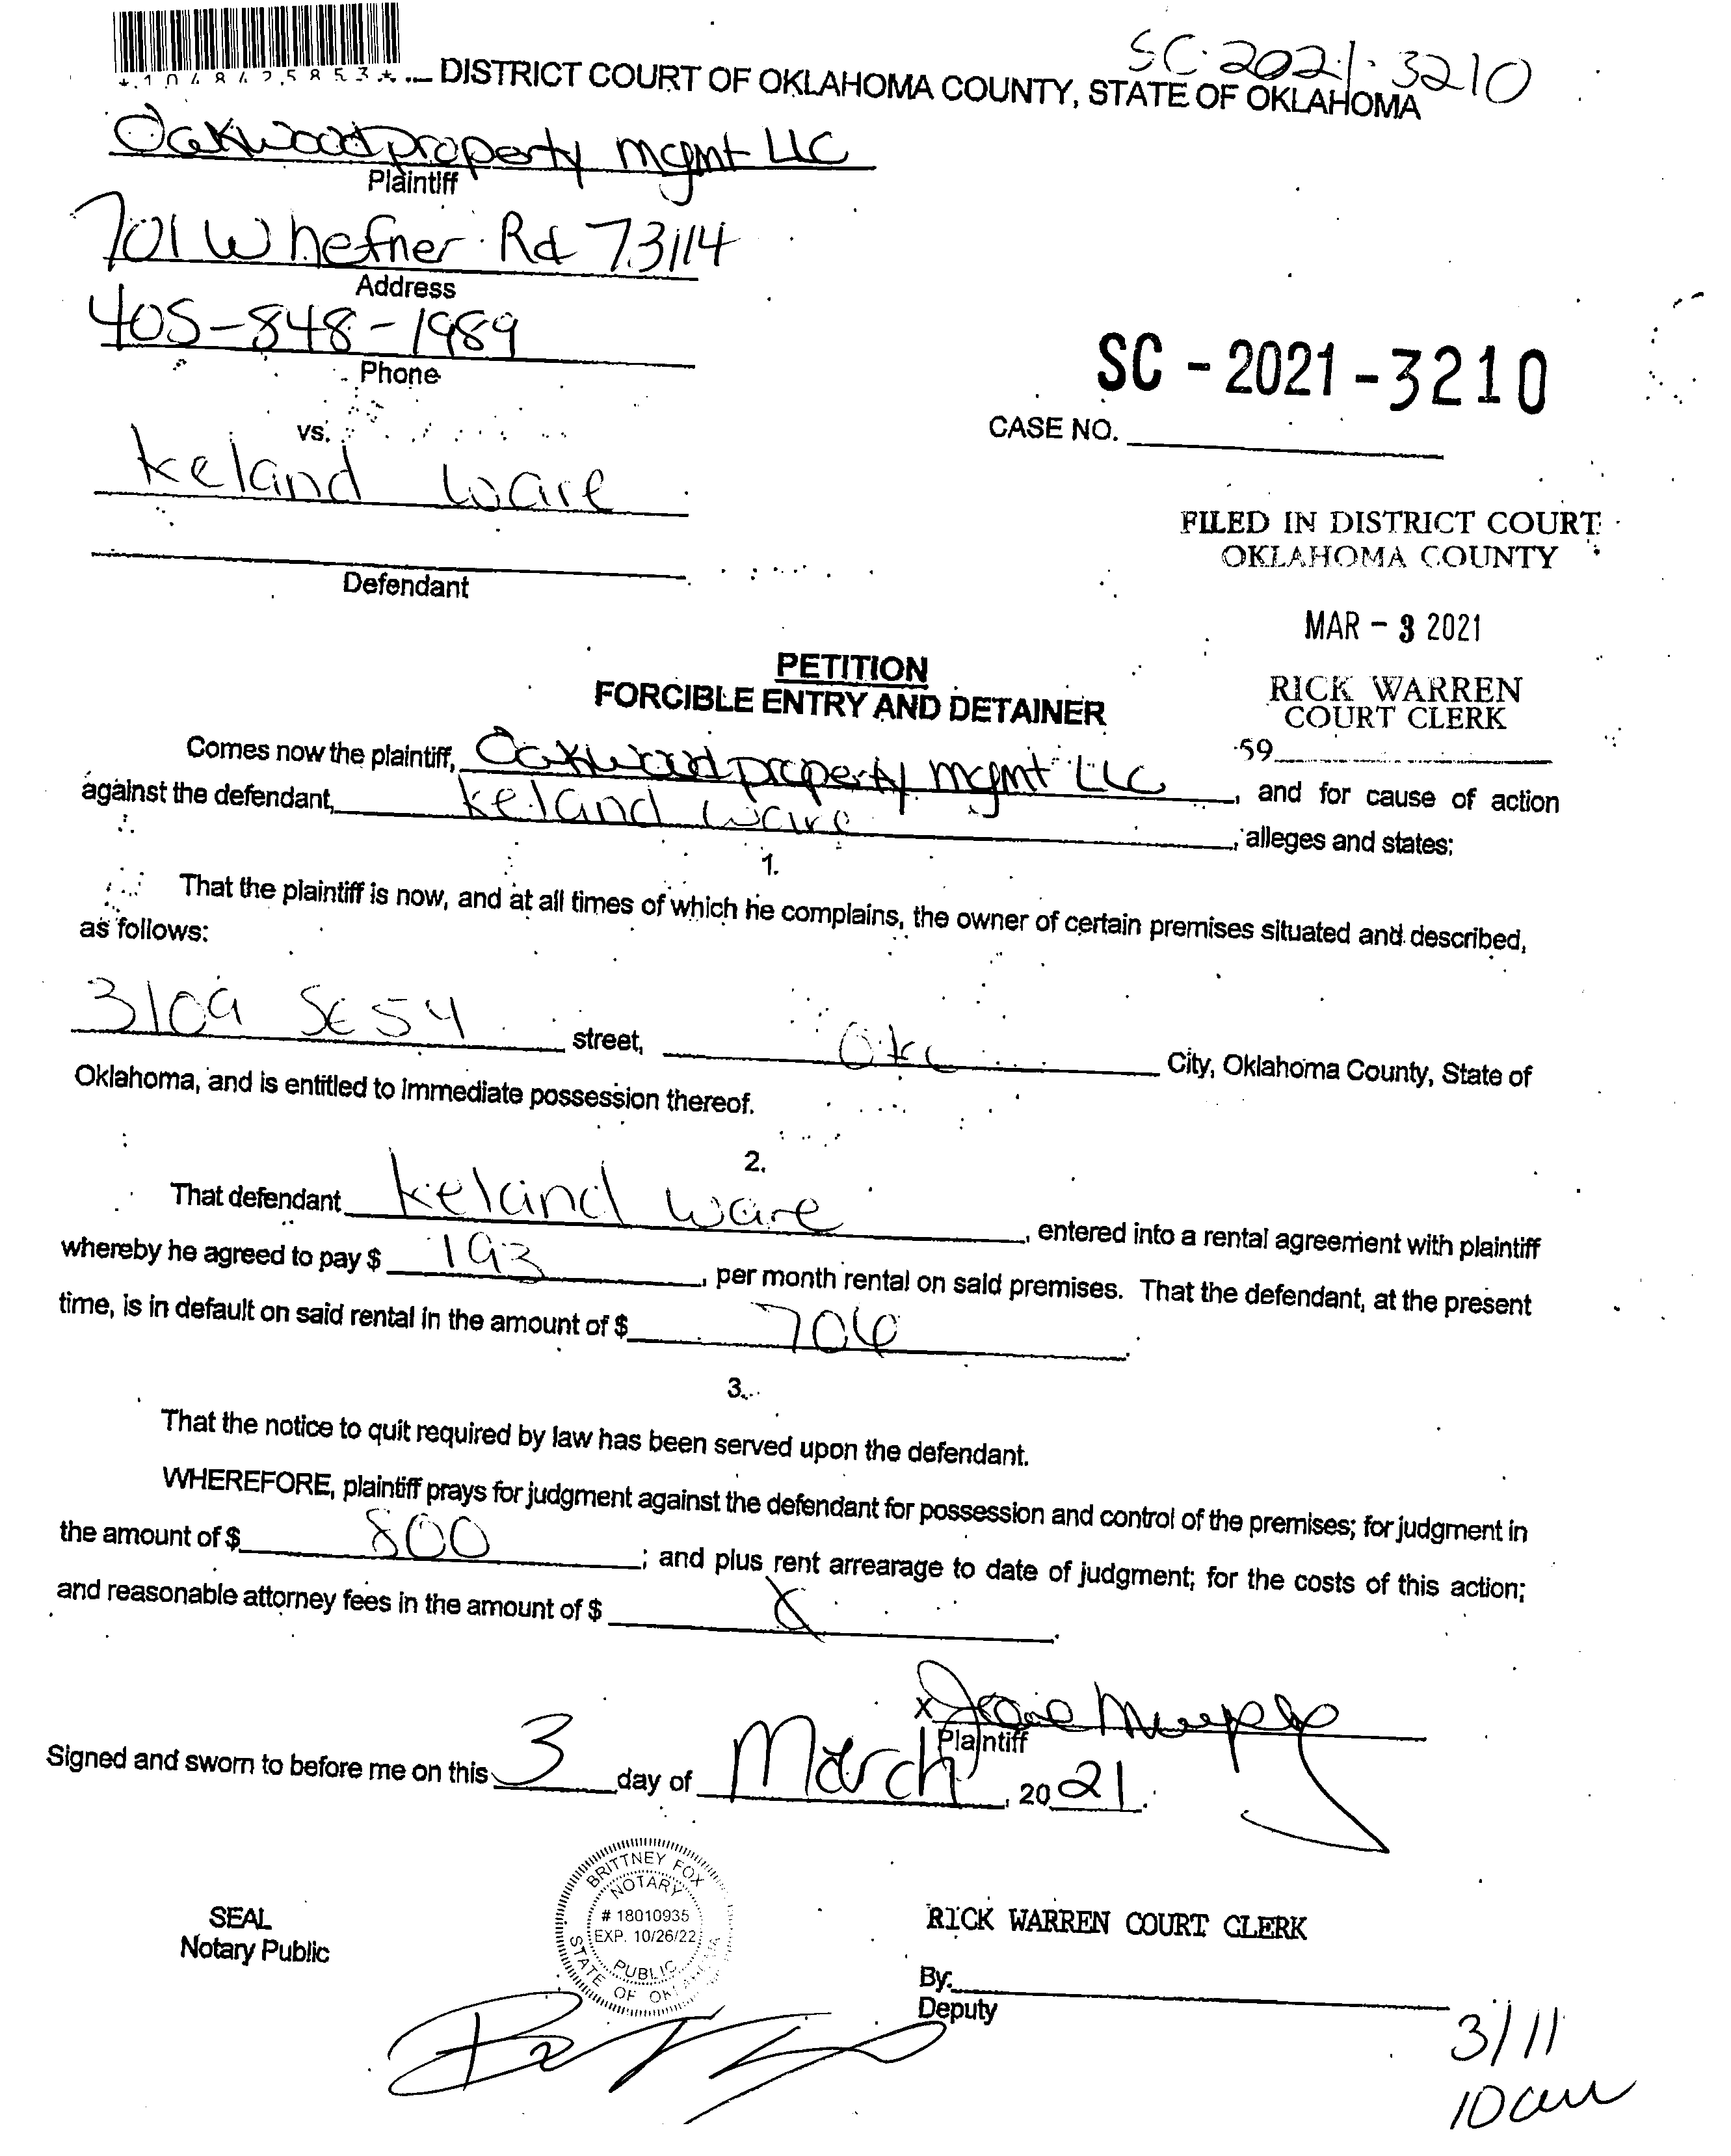 SC-2021-3210
*1048425853*
DISTRICT COURT OF OKLAHOMA COUNTY, STATE OF OKLAHOMA
Oakwood property mgmt LLC
Plaintiff
701 W hefner Rd 73114
Address
405-848-1989
Phone
SC - 2021 - 3210
CASE NO.
vs.
Keland Ware
Defendant
FILED IN DISTRICT COURT
OKLAHOMA COUNTY
MAR - 3 2021
RICK WARREN
COURT CLERK
59
PETITION
FORCIBLE ENTRY AND DETAINER
Comes now the plaintiff, Oakwood property mgmt LLC
against the defendant, Keland Ware, and for cause of action
, alleges and states:
1.
That the plaintiff is now, and at all times of which he complains, the owner of certain premises situated and described,
as follows:
3109 SE 54 street, OKC City, Oklahoma County, State of
Oklahoma, and is entitled to immediate possession thereof.
2.
That defendant Keland Ware, entered into a rental agreement with plaintiff
whereby he agreed to pay $ 193, per month rental on said premises. That the defendant, at the present
time, is in default on said rental in the amount of $ 706.
3.
That the notice to quit required by law has been served upon the defendant.
WHEREFORE, plaintiff prays for judgment against the defendant for possession and control of the premises; for judgment in
the amount of $ 800; and plus rent arrearage to date of judgment; for the costs of this action;
and reasonable attorney fees in the amount of $
X
Plaintiff
Signed and sworn to before me on this 3 day of March, 2021.
BRITTNEY FOX
NOTARY
# 18010935
EXP. 10/26/22
PUBLIC
STATE OF OKLAHOMA
SEAL
Notary Public
RICK WARREN COURT CLERK
By:
Deputy
3/11
10am